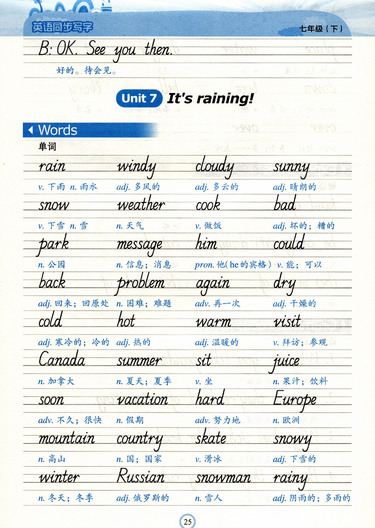 英语同步写字 七年级（下）
B: OK. See you then.
好的。待会见。
Unit 7 It's raining!
Words
单词
rain windy cloudy sunny
v. 下雨 n. 雨水 adj. 多风的 adj. 多云的 adj. 晴朗的
snow weather cook bad
v. 下雪 n. 雪 n. 天气 v. 做饭 adj. 坏的；糟的
park message him could
n. 公园 n. 信息；消息 pron. 他(he的宾格) v. 能；可以
back problem again dry
adj. 回来；回原处 n. 困难；难题 adv. 再一次 adj. 干燥的
cold hot warm visit
adj. 寒冷的；冷的 adj. 热的 adj. 温暖的 v. 拜访；参观
Canada summer sit juice
n. 加拿大 n. 夏天；夏季 v. 坐 n. 果汁；饮料
soon vacation hard Europe
adv. 不久；很快 n. 假期 adv. 努力地 n. 欧洲
mountain country skate snowy
n. 高山 n. 国；国家 v. 滑冰 adj. 下雪的
winter Russian snowman rainy
n. 冬天；冬季 adj. 俄罗斯的 n. 雪人 adj. 阴雨的；多雨的
25